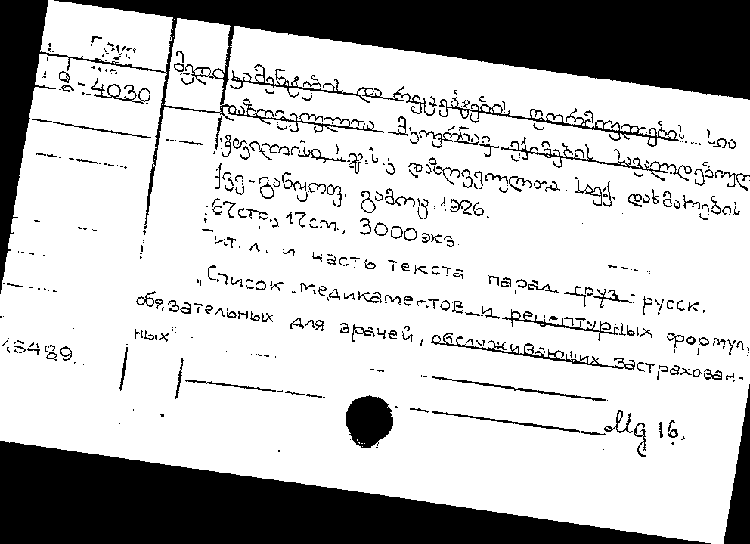 Груз
2-4030
მედიკამენტების და რეცეპტების ფორმულების სია
დაზღვეულთა მკურნავ ექიმების სავალდებულო
ტფილისი, ს.ს.ს.კ დაზღვეულთა სამკ. დახმარების
ქვე-განყოფ. გამოც. 1926.
67 стр., 17 см., 3000 экз.
Тит. л. и часть текста парал. груз-русск.
„Список медикаментов и рецептурных формул,
обязательных для врачей, обслуживающих застрахован-
ных"
13489.
Мд 16.